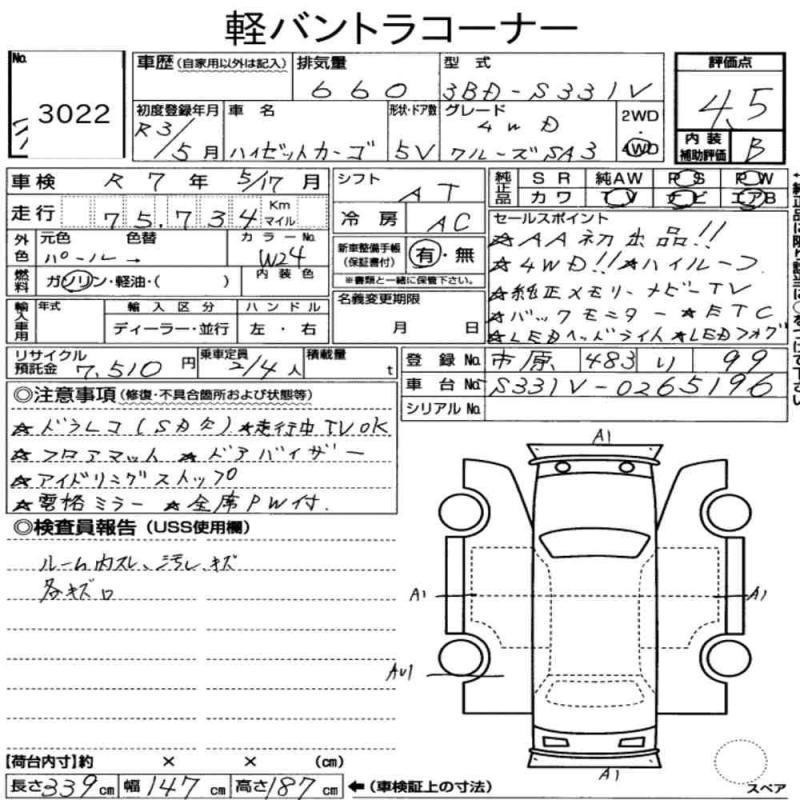 軽バントラコーナー
No. 3022
車歴 (自家用以外は記入) 排気量 660 型式 3BD-S331V
初度登録年月 R3/5月 車名 ハイゼットカーゴ 形状・ドア数 5V グレード 4WD クルーズSA3 2WD・4WD
評価点 4.5
内装補助評価 B
車検 R7年5/17月
走行 75,734 Km マイル
シフト AT
冷房 AC
純正品 SR 純AW PS PW
カワ TV ナビ エアB
外色 元色 パール 色替 → カラーNo. W24
燃料 ガソリン・軽油・( ) 内装色
新車整備手帳(保証書付) 有・無
※書類と一緒に保管下さい。
輸入車用 年式 輸入区分 ディーラー・並行 ハンドル 左・右
名義変更期限 月 日
セールスポイント
☆AA初出品!!
☆4WD!!☆ハイルーフ
☆純正メモリーナビーTV
☆バックモニター ☆ETC
☆LEDヘッドライト☆LEDフォグ
リサイクル預託金 7,510円 乗車定員 2/4人 積載量 t
登録No. 市原 483 り 99
車台No. S331V-0265196
シリアルNo.
◎注意事項 (修復・不具合箇所および状態等)
☆ドラレコ(SD欠)☆走行中TVOK
☆フロアマット ☆ドアバイザー
☆アイドリングストップ
☆電格ミラー ☆全席PW付.
◎検査員報告 (USS使用欄)
ルーム内スレ、汚レ、キズ
各キズ
A1
A1
A1
A1
スペア
【荷台内寸】約 × × (cm)
長さ339cm 幅147cm 高さ187cm ←(車検証上の寸法)